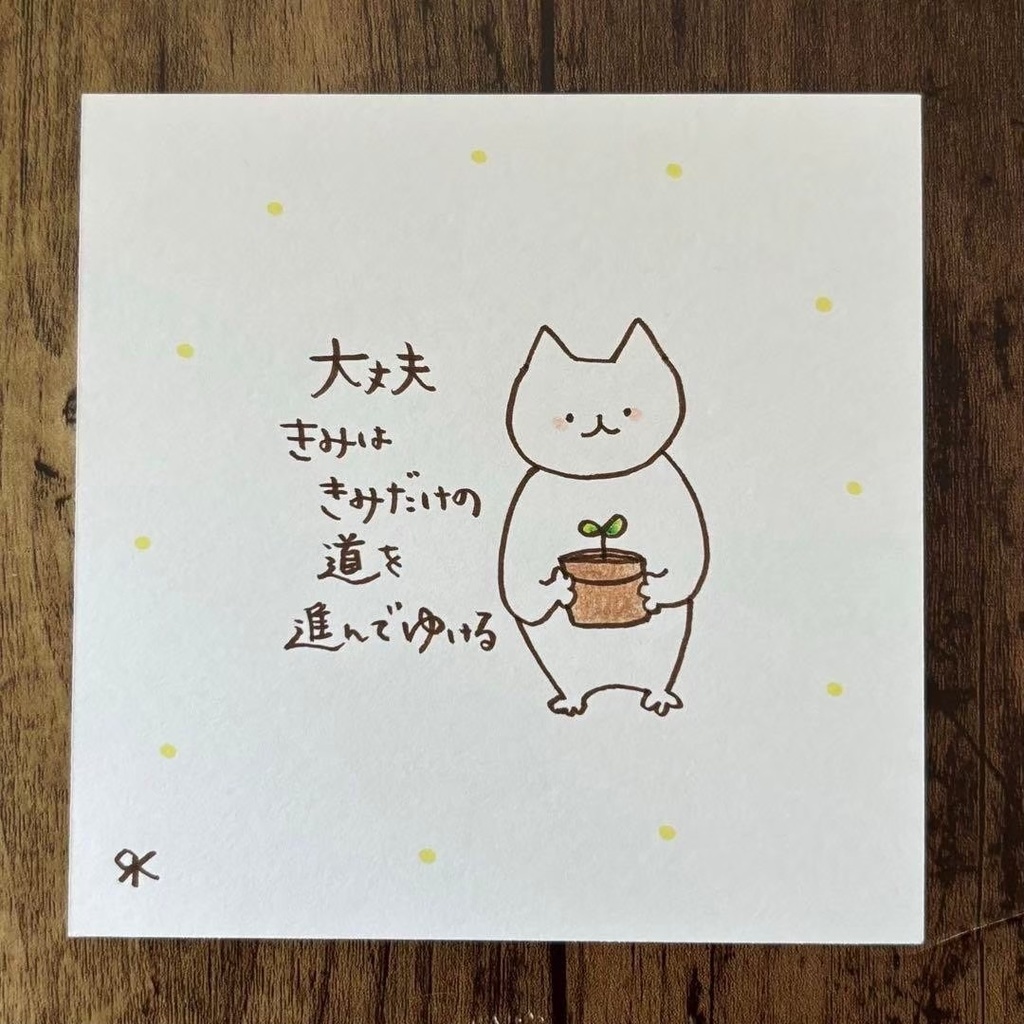 大丈夫
きみは
きみだけの
道を
進んでゆける